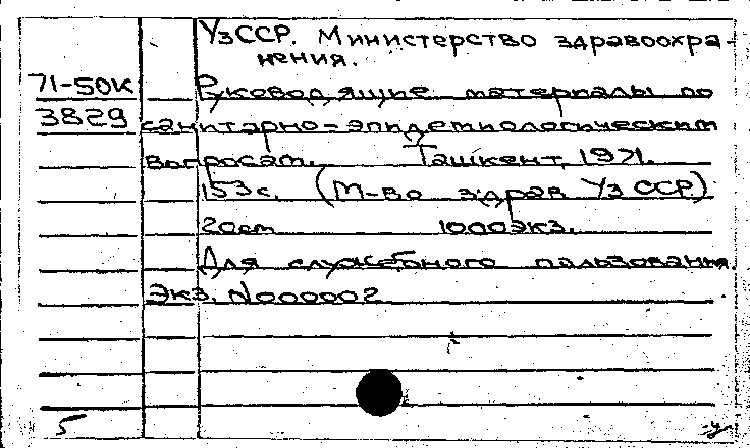 УзССР. Министерство здравоохра-
нения.
71-50К Руководящие материалы по
3829 санитарно-эпидемиологическим
вопросам. Ташкент, 1971.
153с. (М-во здрав. УзССР)
20см 1000экз.
Для служебного пользования.
Экз. N000002
5